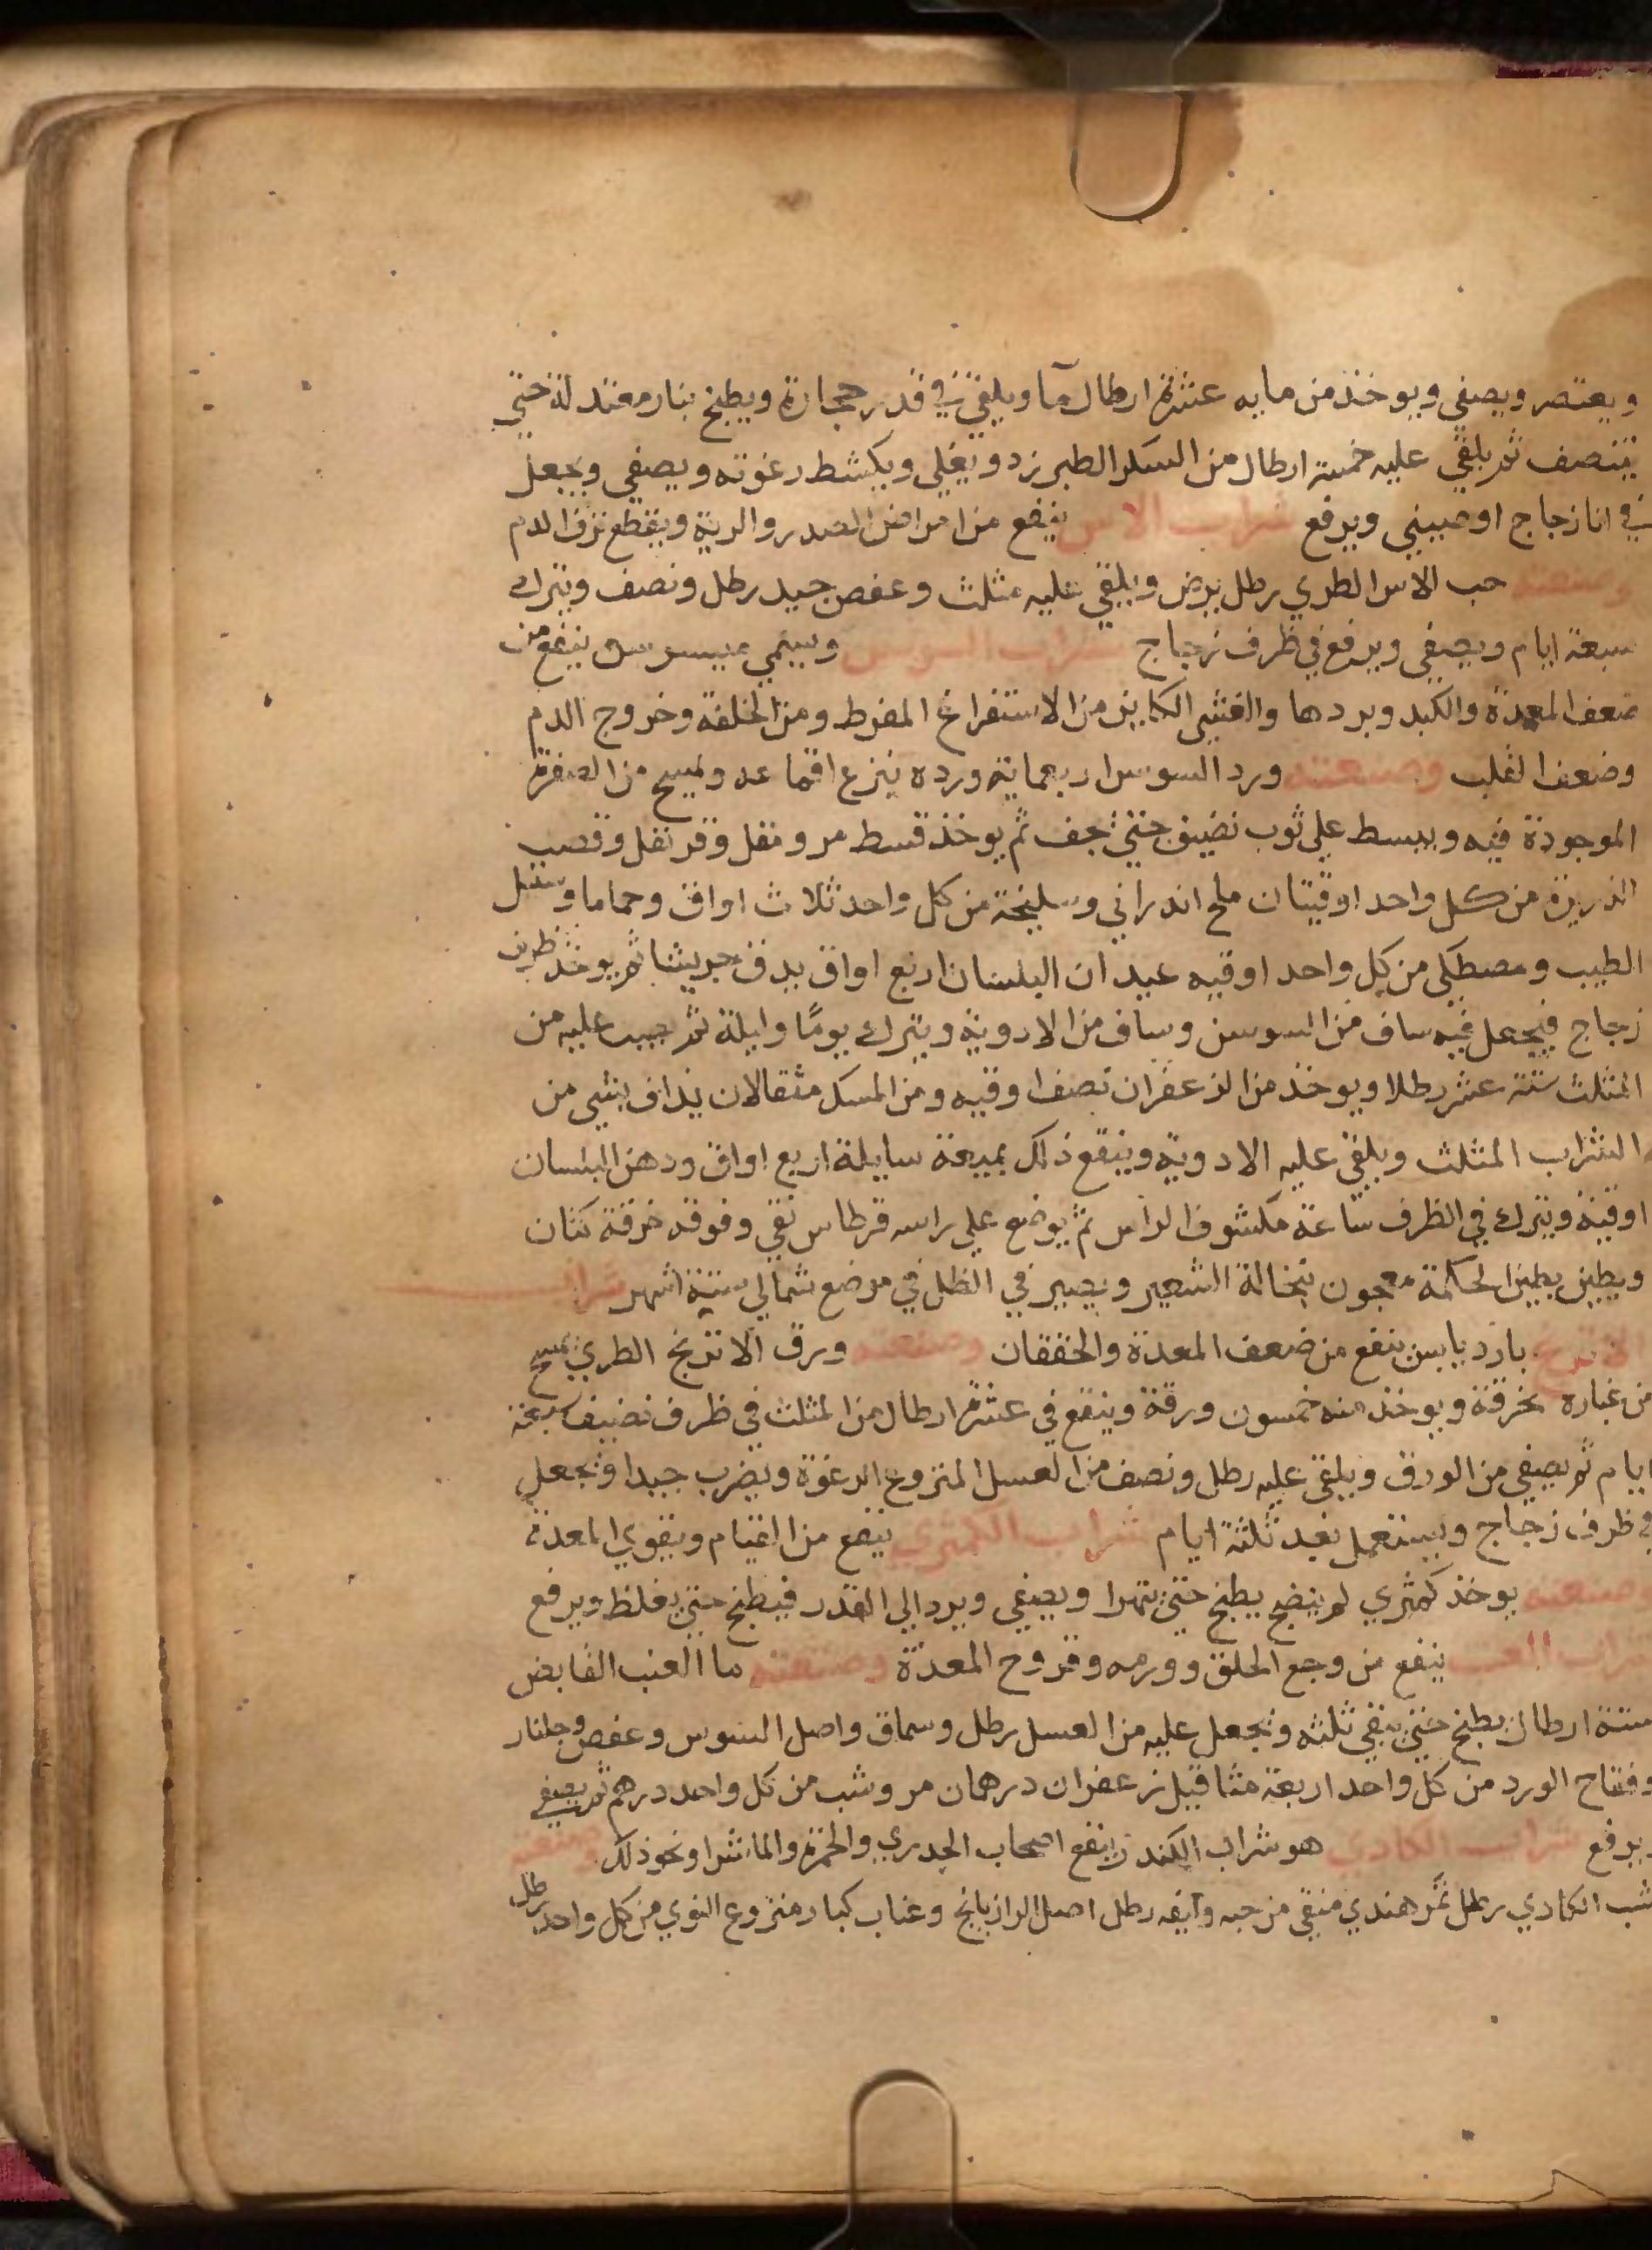 ويعتصر ويصفي ويوخذ من مايه عشرة ارطال ما ويلقي في قدر حجارة ويطبخ بنار معتدلة حتي
ينتصف ثم يلقي عليه خمسة ارطال من السكر الطبرزد ويغلي ويكشط رغوته ويصفي ويجعل
في انا زجاج او صيني ويرفع شراب الاس ينفع من امراض الصدر والرية ويقطع نزف الدم
وصنعته حب الاس الطري رطل يرض ويلقي عليه مثلث وعفص جيد رطل ونصف ويترك
سبعة ايام ويصفي ويرفع في ظرف زجاج شراب سوسن ويسمي ميسوسن ينفع من
ضعف المعدة والكبد وبردها والغشي الكاين من الاستفراغ المفرط ومن الخلفة وخروج الدم
وضعف القلب وصنعته ورد السوسن اربعماية وردة ينزع اقماعه ويمسح من الصفرة
الموجودة فيه ويبسط علي ثوب نضيف حتي يجف ثم يوخذ قسط مر ومقل وقرنفل وقصب
الذريرة من كل واحد اوقيتان ملح اندراني وسليخة من كل واحد ثلاث اواق وحماما وسنبل
الطيب ومصطكي من كل واحد اوقيه عيدان البلسان اربع اواق يدق جريشا ثم يوخذ ظرف
زجاج فيجعل فيه ساف من السوسن وساف من الادوية ويترك يومًا وليلة ثم يصب عليه من
المثلث ستة عشر رطلا ويوخذ من الزعفران نصف اوقيه ومن المسك مثقالان يداف بشي من
الشراب المثلث ويلقي عليه الادوية وينقع ذلك بميعة سايلة اربع اواق ودهن البلسان
اوقية ويترك في الظرف ساعة مكشوف الراس ثم يوضع علي راسه قرطاس نقي وفوقه خرقة كتان
ويطين بطين الحكمة معجون بنخالة الشعير ويصير في الظل في موضع شمالي ستة اشهر شراب
الاترج بارد يابس ينفع من ضعف المعدة والخفقان وصنعته ورق الاترنج الطري يمسح
من غباره بخرقة ويوخذ منه خمسون ورقة وينقع في عشرة ارطال من المثلث في ظرف نضيف سبعة
ايام ثم يصفي من الورق ويلقي عليه رطل ونصف من العسل المنزوع الرغوة ويضرب جيدا ويجعل
في ظرف زجاج ويستعمل بعد ثلثة ايام شراب الكمثري ينفع من الغيام ويقوي المعدة
وصنعته يوخذ كمثري لم ينضج يطبخ حتي يتهرا ويصفي ويرد الي القدر فيطبخ حتي يغلظ ويرفع
شراب العنب ينفع من وجع الحلق وورمه وقروح المعدة وصنعته ما العنب القابض
ستة ارطال يطبخ حتي يبقي ثلثه ويجعل عليه من العسل رطل وسماق واصل السوس وعفص وجلنار
وفقاح الورد من كل واحد اربعة مثاقيل زعفران درهمان مر وشب من كل واحد درهم ثم يصفي
ويرفع شراب الكادي هو شراب الكندر ينفع اصحاب الجدري والحمرة والماشرا ونحو ذلك وصنعته
خشب الكادي رطل تمر هندي منقي من حبه وليفه رطل اصل الرازيانج وعناب كبار منزوع النوي من كل واحد رطل